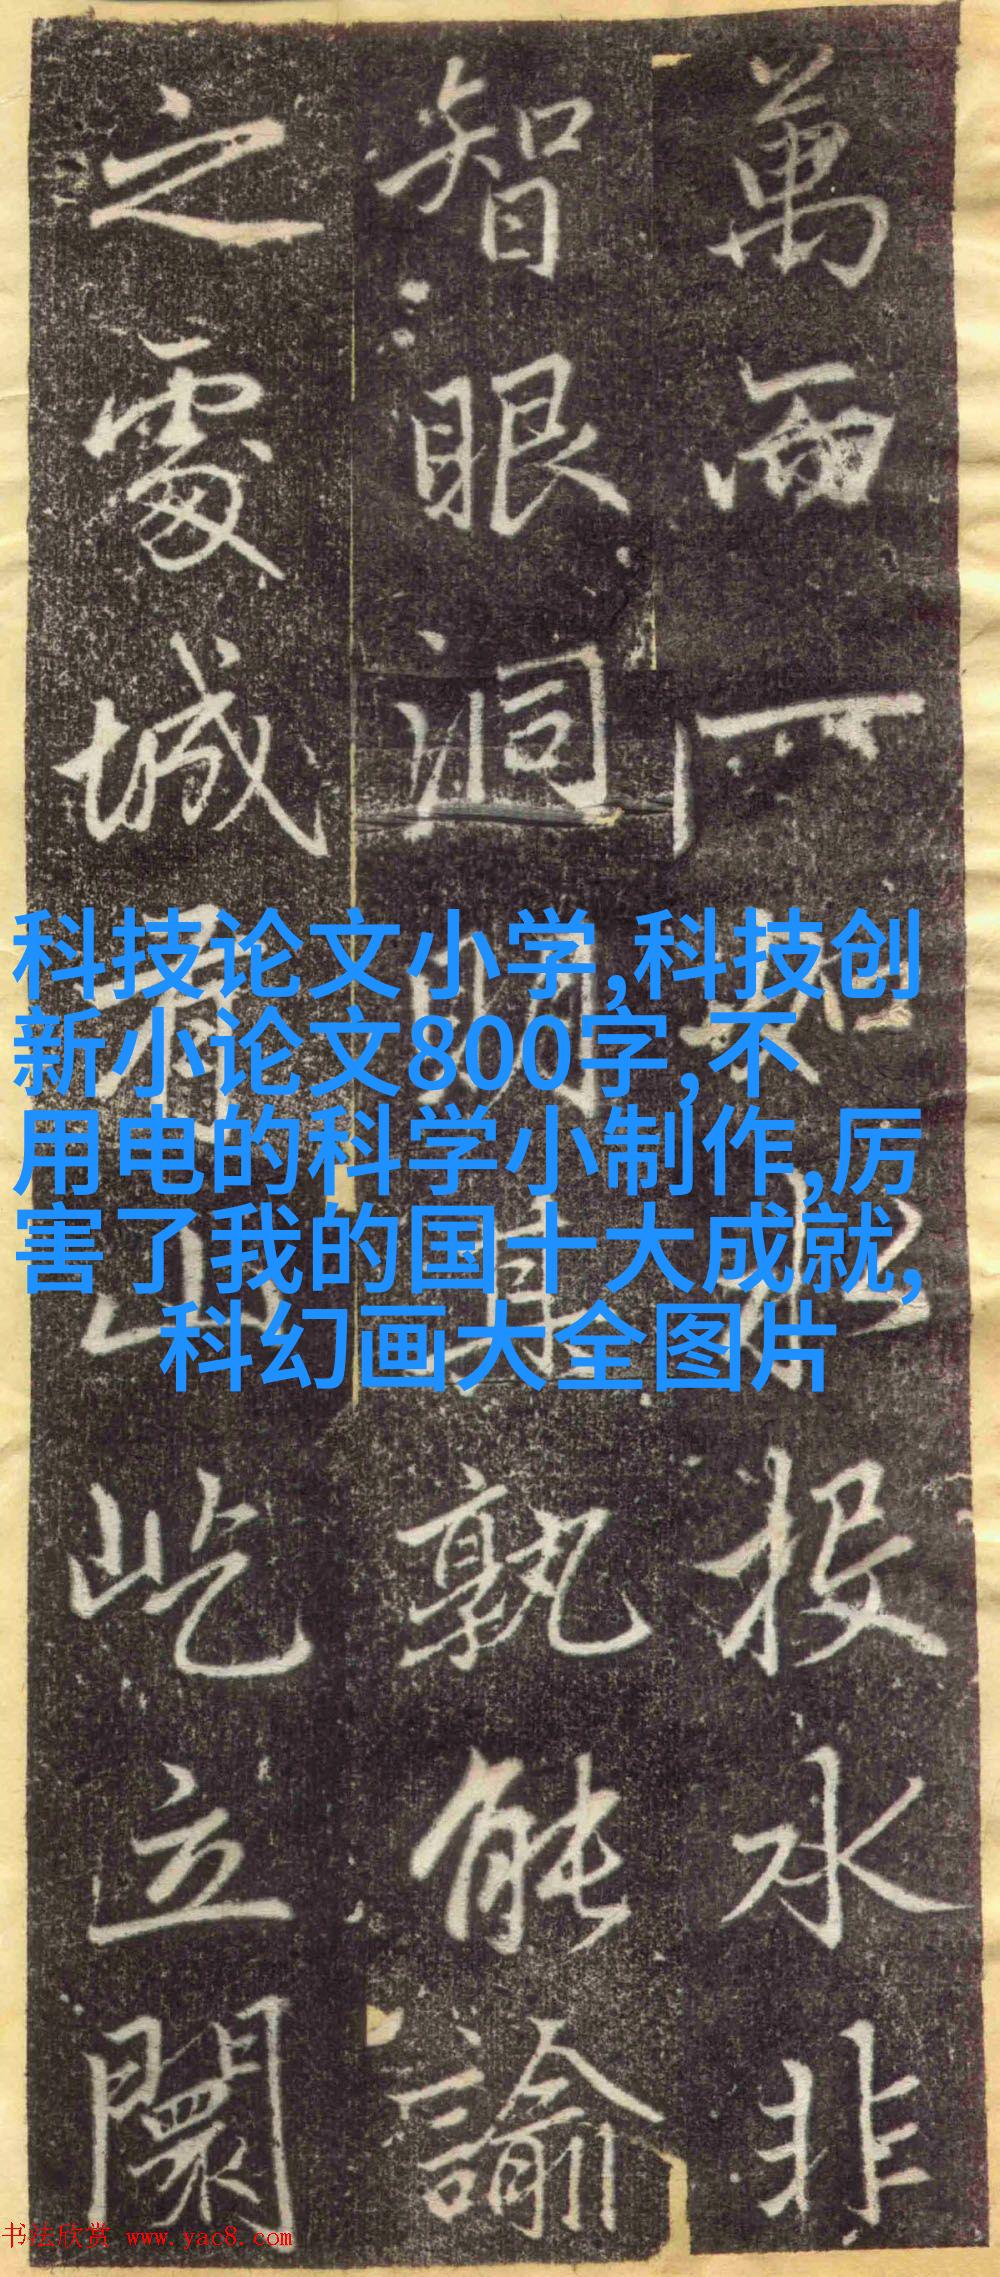 萬
投水非
智眼洞明其孰能諭
之處城
山屹立闤
科技论文小学,科技创
新小论文800字,不
用电的科学小制作,厉
害了我的国十大成就,
科幻画大全图片
书法欣赏 www.yac8.com